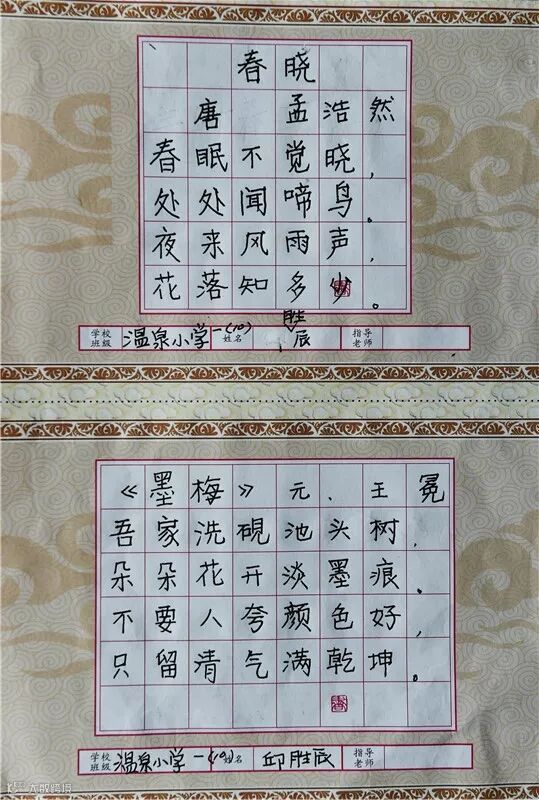 春晓
唐 孟浩然
春眠不觉晓，
处处闻啼鸟。
夜来风雨声，
花落知多少。
学校班级 温泉小学一(10) 姓名 胜辰 指导老师
《墨梅》元、王冕
吾家洗砚池头树，
朵朵花开淡墨痕。
不要人夸颜色好，
只留清气满乾坤。
学校班级 温泉小学一(10) 姓名 邱胜辰 指导老师
大数跨境